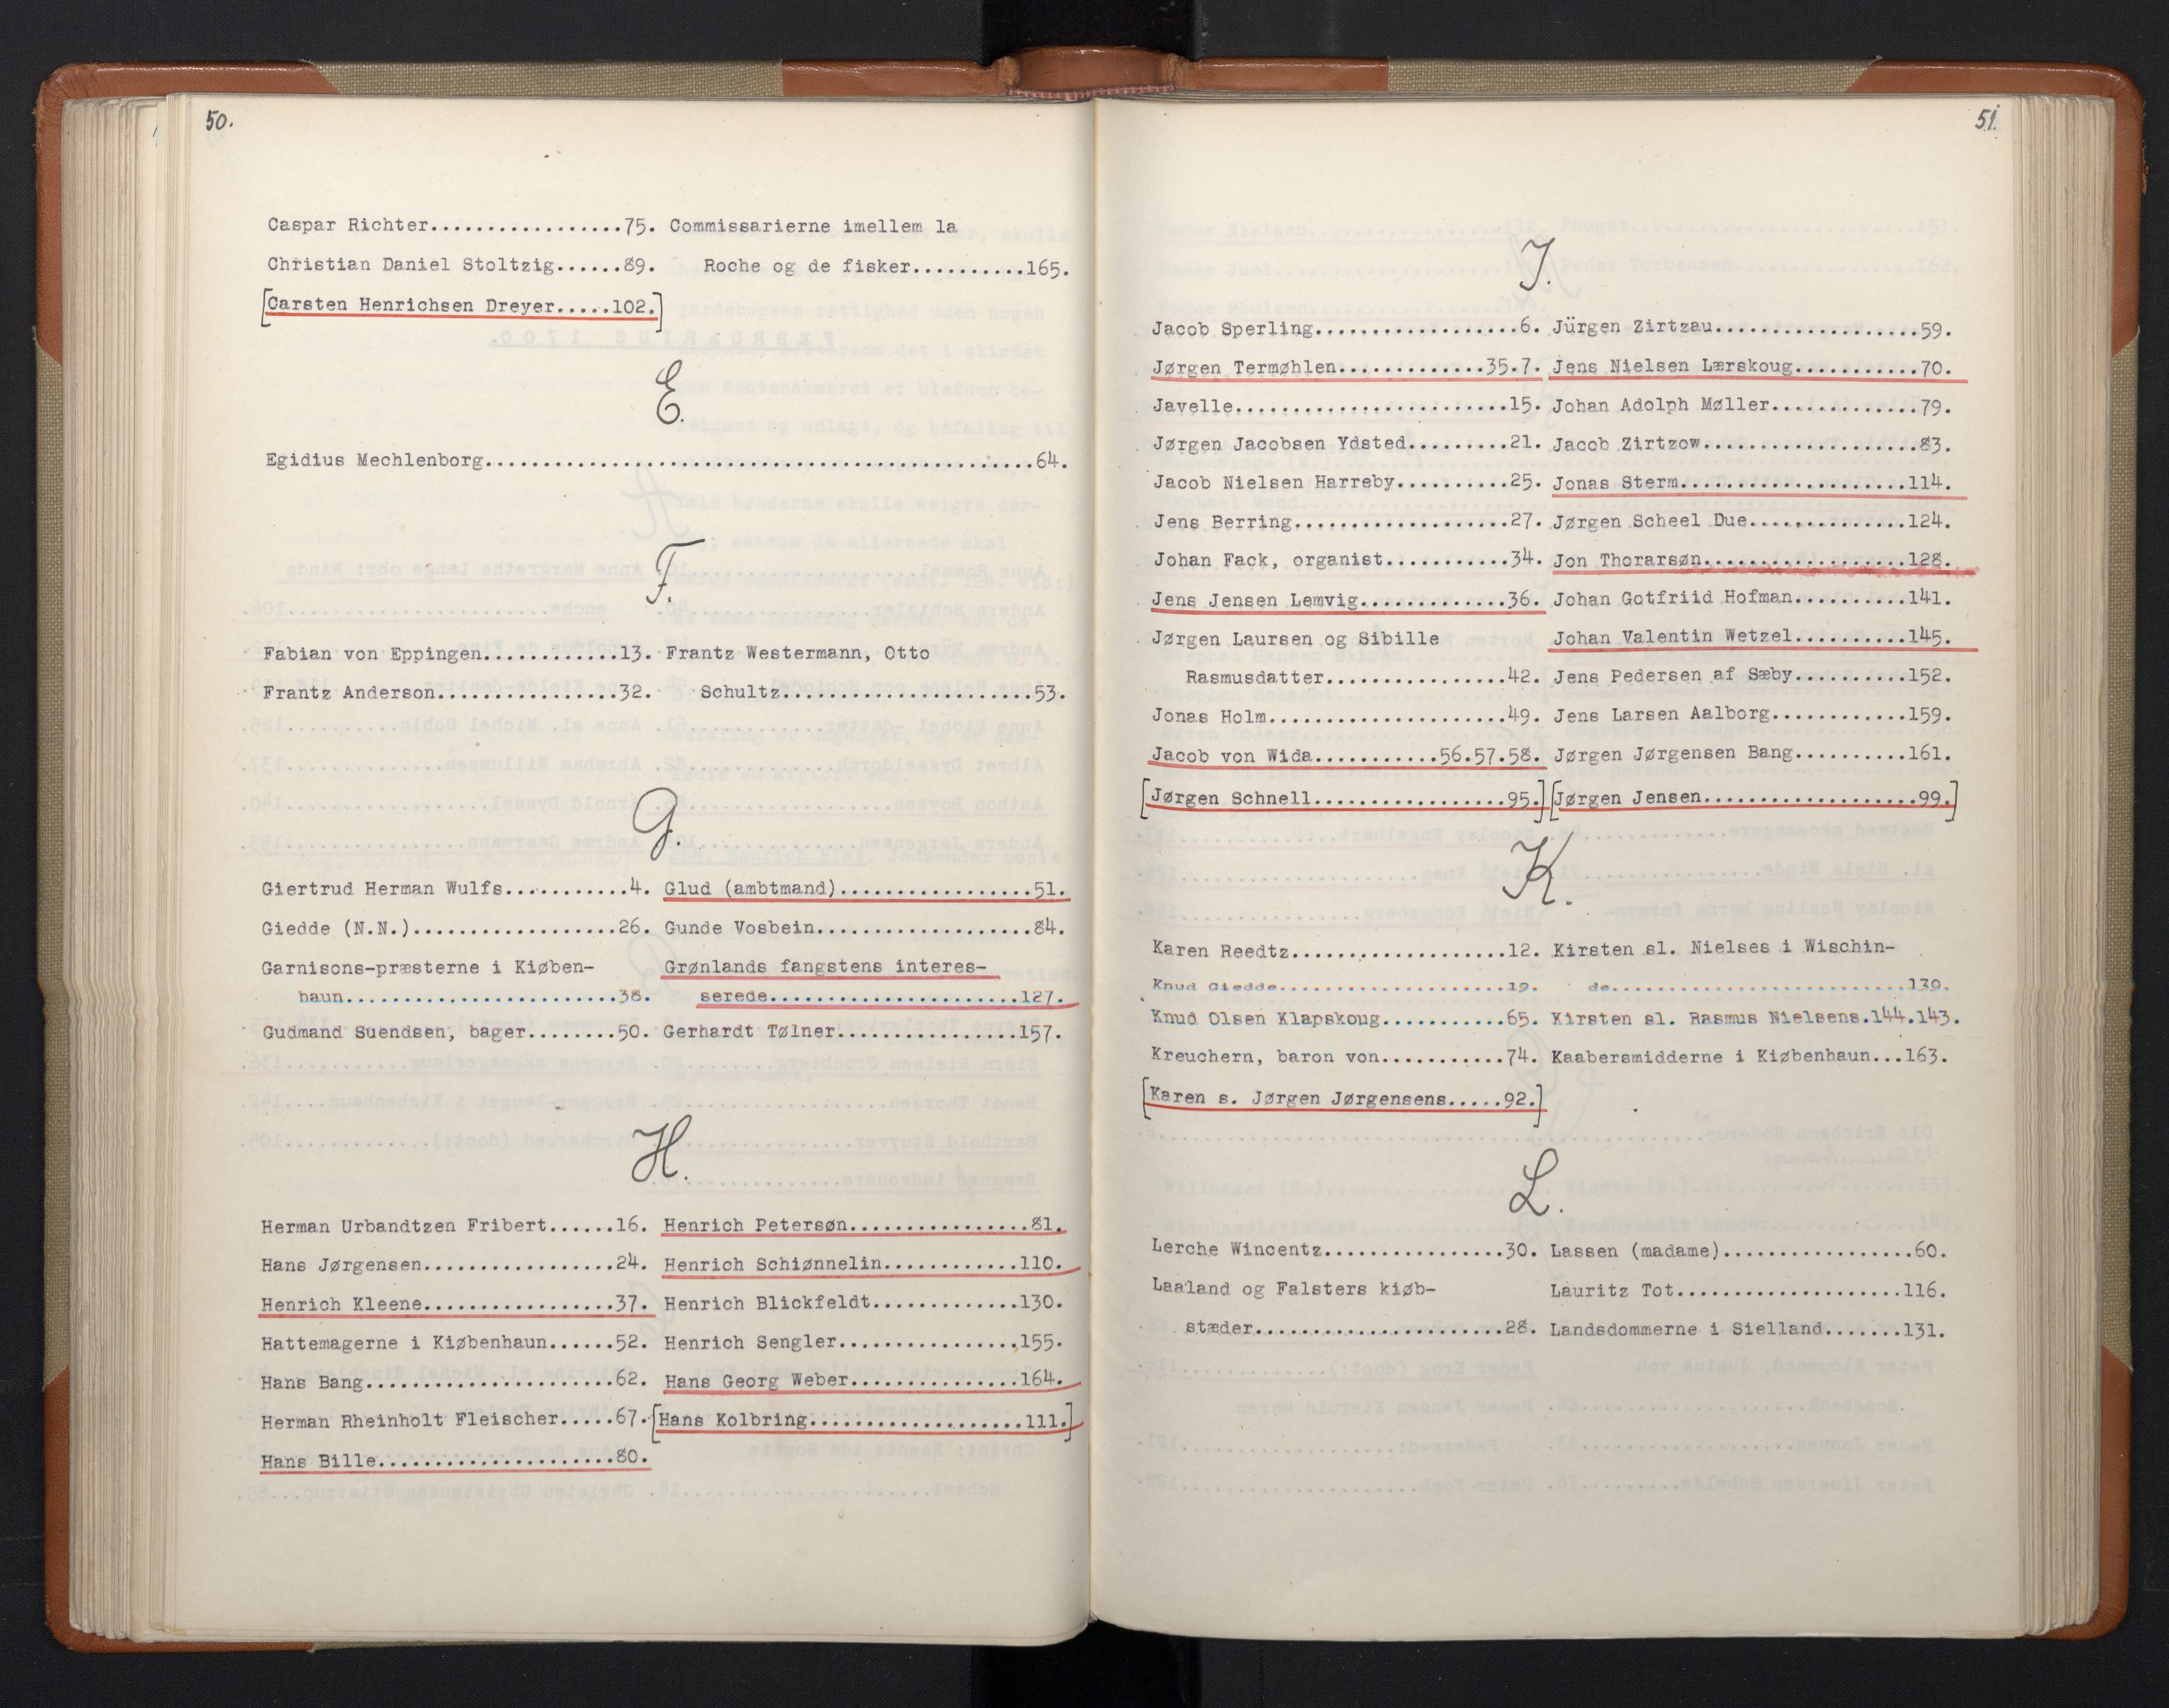 50.
Caspar Richter.................75.
Christian Daniel Stoltzig......89.
[Carsten Henrichsen Dreyer.....102.]
Commissarierne imellem la
Roche og de fisker..........165.
E.
Egidius Mechlenborg................................................64.
F.
Fabian von Eppingen............13.
Frantz Anderson................32.
Frantz Westermann, Otto
Schultz......................53.
G.
Giertrud Herman Wulfs...........4.
Giedde (N.N.)..................26.
Garnisons-præsterne i Kiøben-
haun........................38.
Gudmand Suendsen, bager........50.
Glud (ambtmand).................51.
Gunde Vosbein...................84.
Grønlands fangstens interes-
serede......................127.
Gerhardt Tølner................157.
H.
Herman Urbandtzen Fribert......16.
Hans Jørgensen.................24.
Henrich Kleene.................37.
Hattemagerne i Kiøbenhaun......52.
Hans Bang......................62.
Herman Rheinholt Fleischer.....67.
Hans Bille.....................80.
Henrich Petersøn................81.
Henrich Schiønnelin............110.
Henrich Blickfeldt.............130.
Henrich Sengler................155.
Hans Georg Weber...............164.
[Hans Kolbring...................111.]
51.
J.
Jacob Sperling..................6.
Jørgen Termøhlen.............35.7.
Javelle........................15.
Jørgen Jacobsen Ydsted.........21.
Jacob Nielsen Harreby..........25.
Jens Berring...................27.
Johan Fack, organist...........34.
Jens Jensen Lemvig.............36.
Jørgen Laursen og Sibille
Rasmusdatter................42.
Jonas Holm.....................49.
Jacob von Wida...........56.57.58.
[Jørgen Schnell.................95.]
Jürgen Zirtzau..................59.
Jens Nielsen Lærskoug...........70.
Johan Adolph Møller.............79.
Jacob Zirtzow...................83.
Jonas Sterm....................114.
Jørgen Scheel Due..............124.
Jon Thorarsøn..................128.
Johan Gotfriid Hofman..........141.
Johan Valentin Wetzel..........145.
Jens Pedersen af Sæby..........152.
Jens Larsen Aalborg............159.
Jørgen Jørgensen Bang..........161.
[Jørgen Jensen...................99.]
K.
Karen Reedtz...................12.
Knud Giedde....................19.
Knud Olsen Klapskoug...........65.
Kreuchern, baron von...........74.
[Karen s. Jørgen Jørgensens.....92.]
Kirsten sl. Nielses i Wischin-
de..........................139.
Kirsten sl. Rasmus Nielsens.144.143.
Kaabersmidderne i Kiøbenhaun...163.
L.
Lerche Wincentz................30.
Laaland og Falsters kiøb-
stæder......................28.
Lassen (madame).................60.
Lauritz Tot....................116.
Landsdommerne i Sielland.......131.